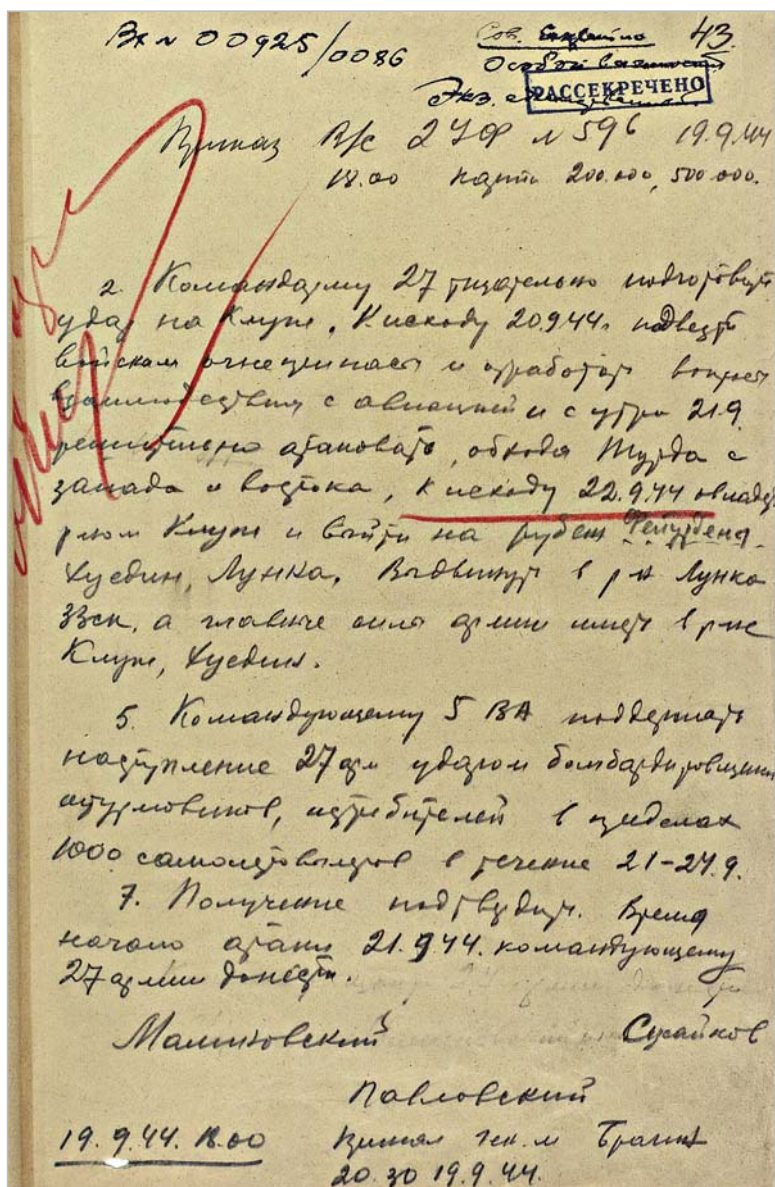 Вх № 00925/0086
Сов. Секретно 43.
Особой важности
РАССЕКРЕЧЕНО
Экз.
Приказ В/с 2 УФ № 596 19.9.44
18.00 карта 200.000, 500.000.
2. Командарму 27 тщательно подготовить
удар на Клуж. К исходу 20.9.44. подвезти
войскам огнеприпасы и отработать вопросы
взаимодействия с авиацией и с утра 21.9.
решительно атаковать, обходя Турда с
запада и востока, к исходу 22.9.44 овладеть
р-ном Клуж и выйти на рубеж
Хуедин, Лунка. Выдвинуть в р-н Лунка
33 ск, а главные силы армии иметь в р-не
Клуж, Хуедин.
5. Командующему 5 ВА поддержать
наступление 27 арм ударом бомбардировщиков
штурмовиков, истребителей в пределах
1000 самолетовылетов в течение 21-24.9.
7. Получение подтвердить. Время
начало атаки 21.9.44. командующему
27 армии донести.
Малиновский Сусайков
Павловский
19.9.44. 18.00 принял ген. м
20.30 19.9.44.